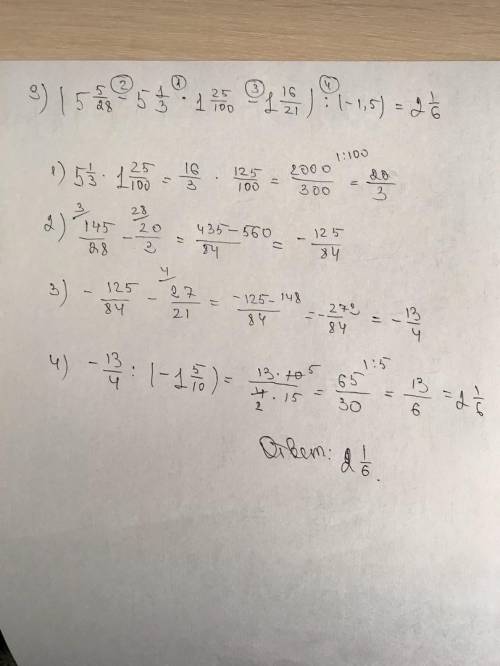 9) (5 5/28 - 5 1/3 · 1 25/100 - 1 16/21) : (-1,5) = 2 1/6
1) 5 1/3 · 1 25/100 = 16/3 · 125/100 = 2000/300 1:100 = 20/3
2) 3/ 145/28 - 28/ 20/3 = 435-560/84 = - 125/84
3) - 125/84 - 4/ 37/21 = -125-148/84 = - 273/84 = - 13/4
4) - 13/4 : (-1 5/10) = 13·10 5/4·15 2 = 65/30 1:5 = 13/6 = 2 1/6
Ответ: 2 1/6.